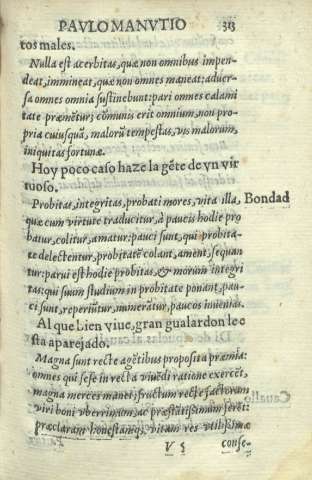 PAVLO MANVTIO 313
tos males.
Nulla est acerbitas, quæ non omnibus impen-
deat, immineat, quæ non omnes maneat: aduer-
sa omnes omnia sustinebunt: pari omnes calami
tate præmẽtur: cõmunis erit omnium, non pro-
pria cuiusquã, malorũ tempestas, vis malorum,
iniquitas fortunæ.
Hoy poco caso haze la gẽte de vn vir
tuoso.
Probitas, integritas, probati mores, vita illa, Bondad
quæ cum virtute traducitur, à paucis hodie pro
batur, colitur, amatur: pauci sunt, qui probita-
te delectentur, probitatẽ colant, ament, sequan
tur: parui est hodie probitas, & morum integri
tas: qui suum studium in probitate ponant, pau-
ci sunt, reperiũtur, numerãtur, paucos inuenias.
Al que bien viue, gran gualardon le e
sta aparejado.
Magna sunt recte agẽtibus proposita præmia:
omnes qui sese in recta viuẽdi ratione exercẽt,
magna merces manet: fructum recte factorum
viri boni vberrimum, ac præstãtissimum ferẽt:
præclaram honestamq; vitam res vtilissimæ
V 5 conse-
Cauallo